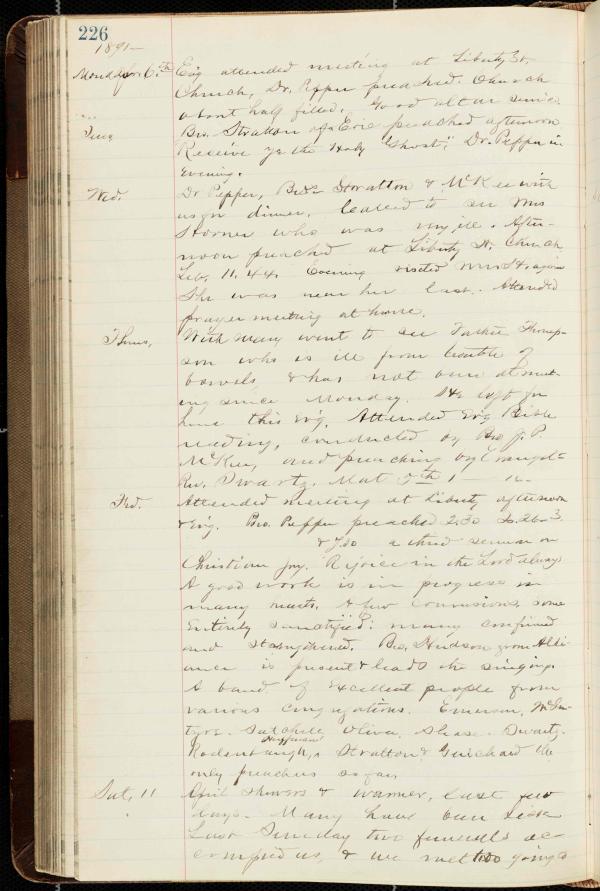 226
1891 —
Mond Apr. 6.th Evg attended meeting at Liberty St.
Church, Dr. Pepper preached. Church
about half filled. Good altar service.
Tues Bro. Stratton of Erie preached afternoon
Receive ye the Holy "Ghost", Dr. Pepper in
evening.
Wed. Dr Pepper, Bros Stratton & McKee with
us for dinner. Called to see Mrs
Horner who was very ill. After-
noon preached at Liberty St. Church
11. 44. Evening visited Mrs H. again
She was near her last. Attended
prayer meeting at home.
Thurs, With Mary went to see Father Thomp-
son who is ill from trouble of
bowels, & has not been at meet-
ing since Monday. He left for
home this Ev'g. Attended Evg Bible
reading, conducted by Bro J. P.
McKee, and preaching by Evangel-
Rev. Swartz. Mat 5th 1 —
Frd. Attended meeting at Liberty afternoon
& Evg. Bro. Pepper preached 2.30
& 7.30 a third sermon on
Christian joy. Rejoice in the Lord always
A good work is in progress in
many hearts. A few conversions, some
Entirely sanctified: many confirmed
and strengthened. Bro. Hudson from Alli-
ance is present & leads the singing.
A band of excellent people from
various congregations. Emerson, McIn-
tyre. Satchell, Oliver, Shase. Swartz.
Huffman
Rodenbaugh, Stratton & Guichard the
only preachers so far.
Sat, 11 April showers & warmer, last few
days. Many have been sick
Last Sunday two funerals ac-
companied us, & we met two going